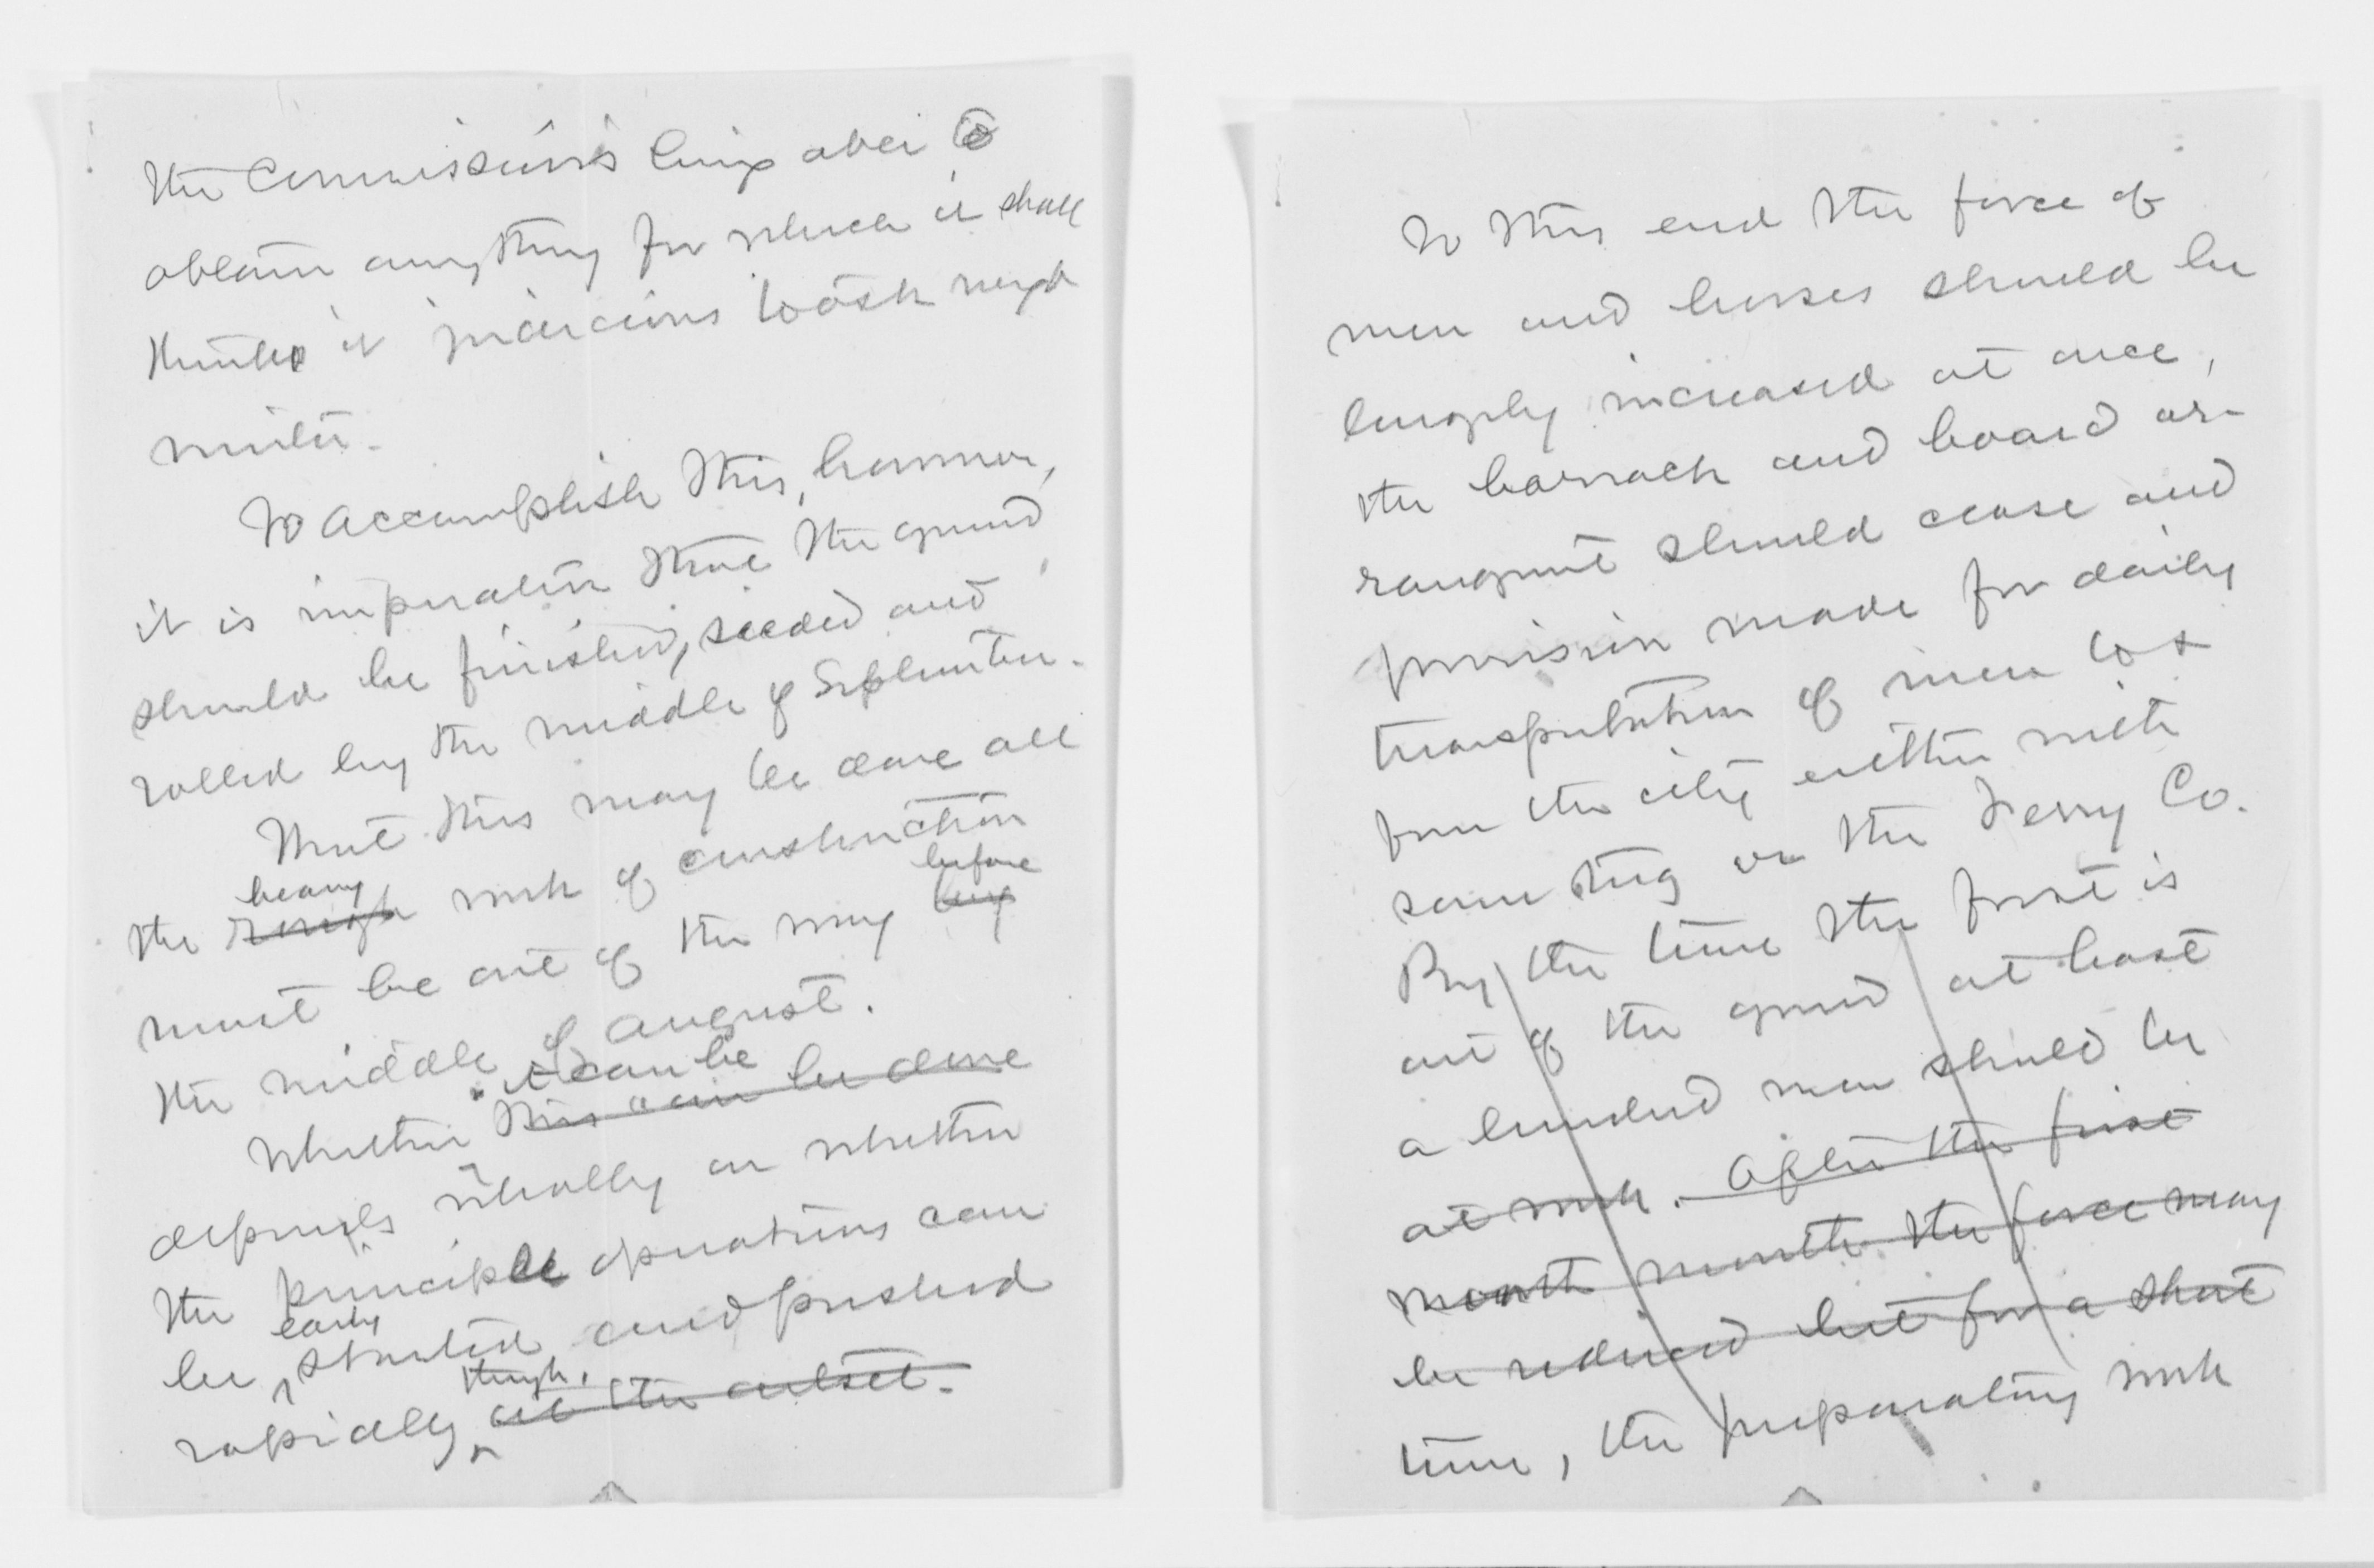 The Commissions being able to
obtain anything for which it shall
thinks it judicious to ask next
winter.
To accomplish this, however,
it is imperative that the ground
should be finished, seeded and
rolled by the middle of September.
That this may be done all
heavy
before
the rough work of construction
must be out of the way by
the middle of August.
it can be
Whether this can be done
depends wholly on whether
the principle operations can
early
be started and pushed
though,
rapidly at the outset.
To this end the force of
men and horses should be
largely increased at once,
the barrack and board ar-
rangment should cease and
provision made for daily
transportation of men to &
from the city either with
some tug or the Ferry Co.
By the time the frost is
out of the ground at least
a hundred men should be
at work. After the first
month month the force may
be reduced but for a short
time, the preparatory work